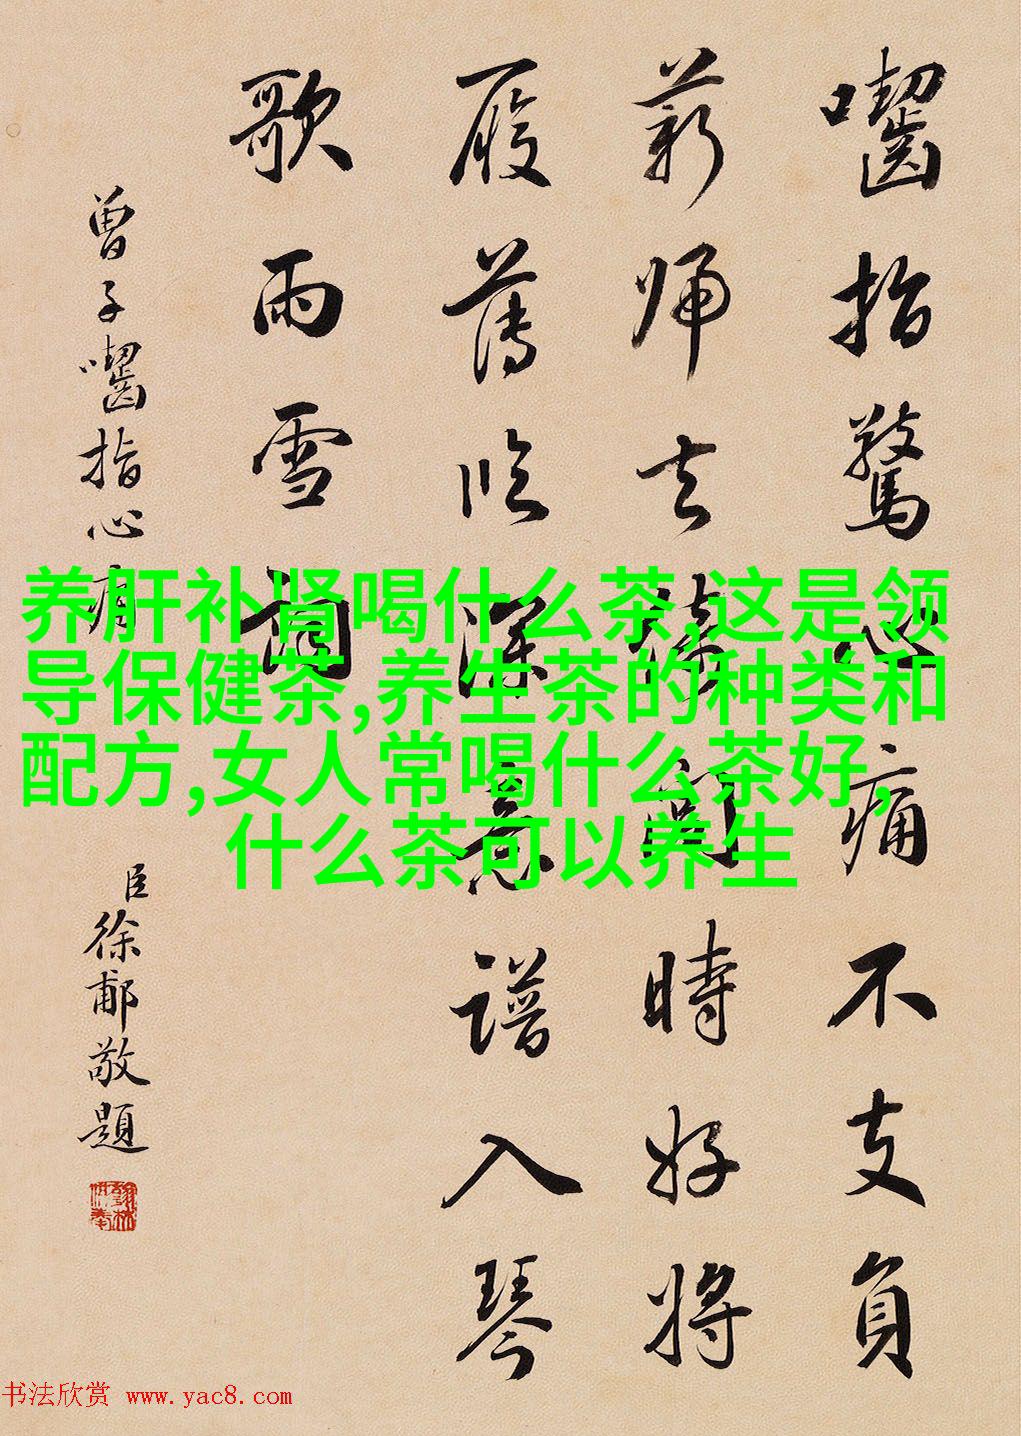 囓指驚心痛不支負
薪歸去閒時好將
履薄臨深意譜入琴
歌雨雪詞
曾子囓指心痛
臣徐郙敬題
养肝补肾喝什么茶,这是领
导保健茶,养生茶的种类和
配方,女人常喝什么茶好,
什么茶可以养生
书法欣赏 www.yac8.com